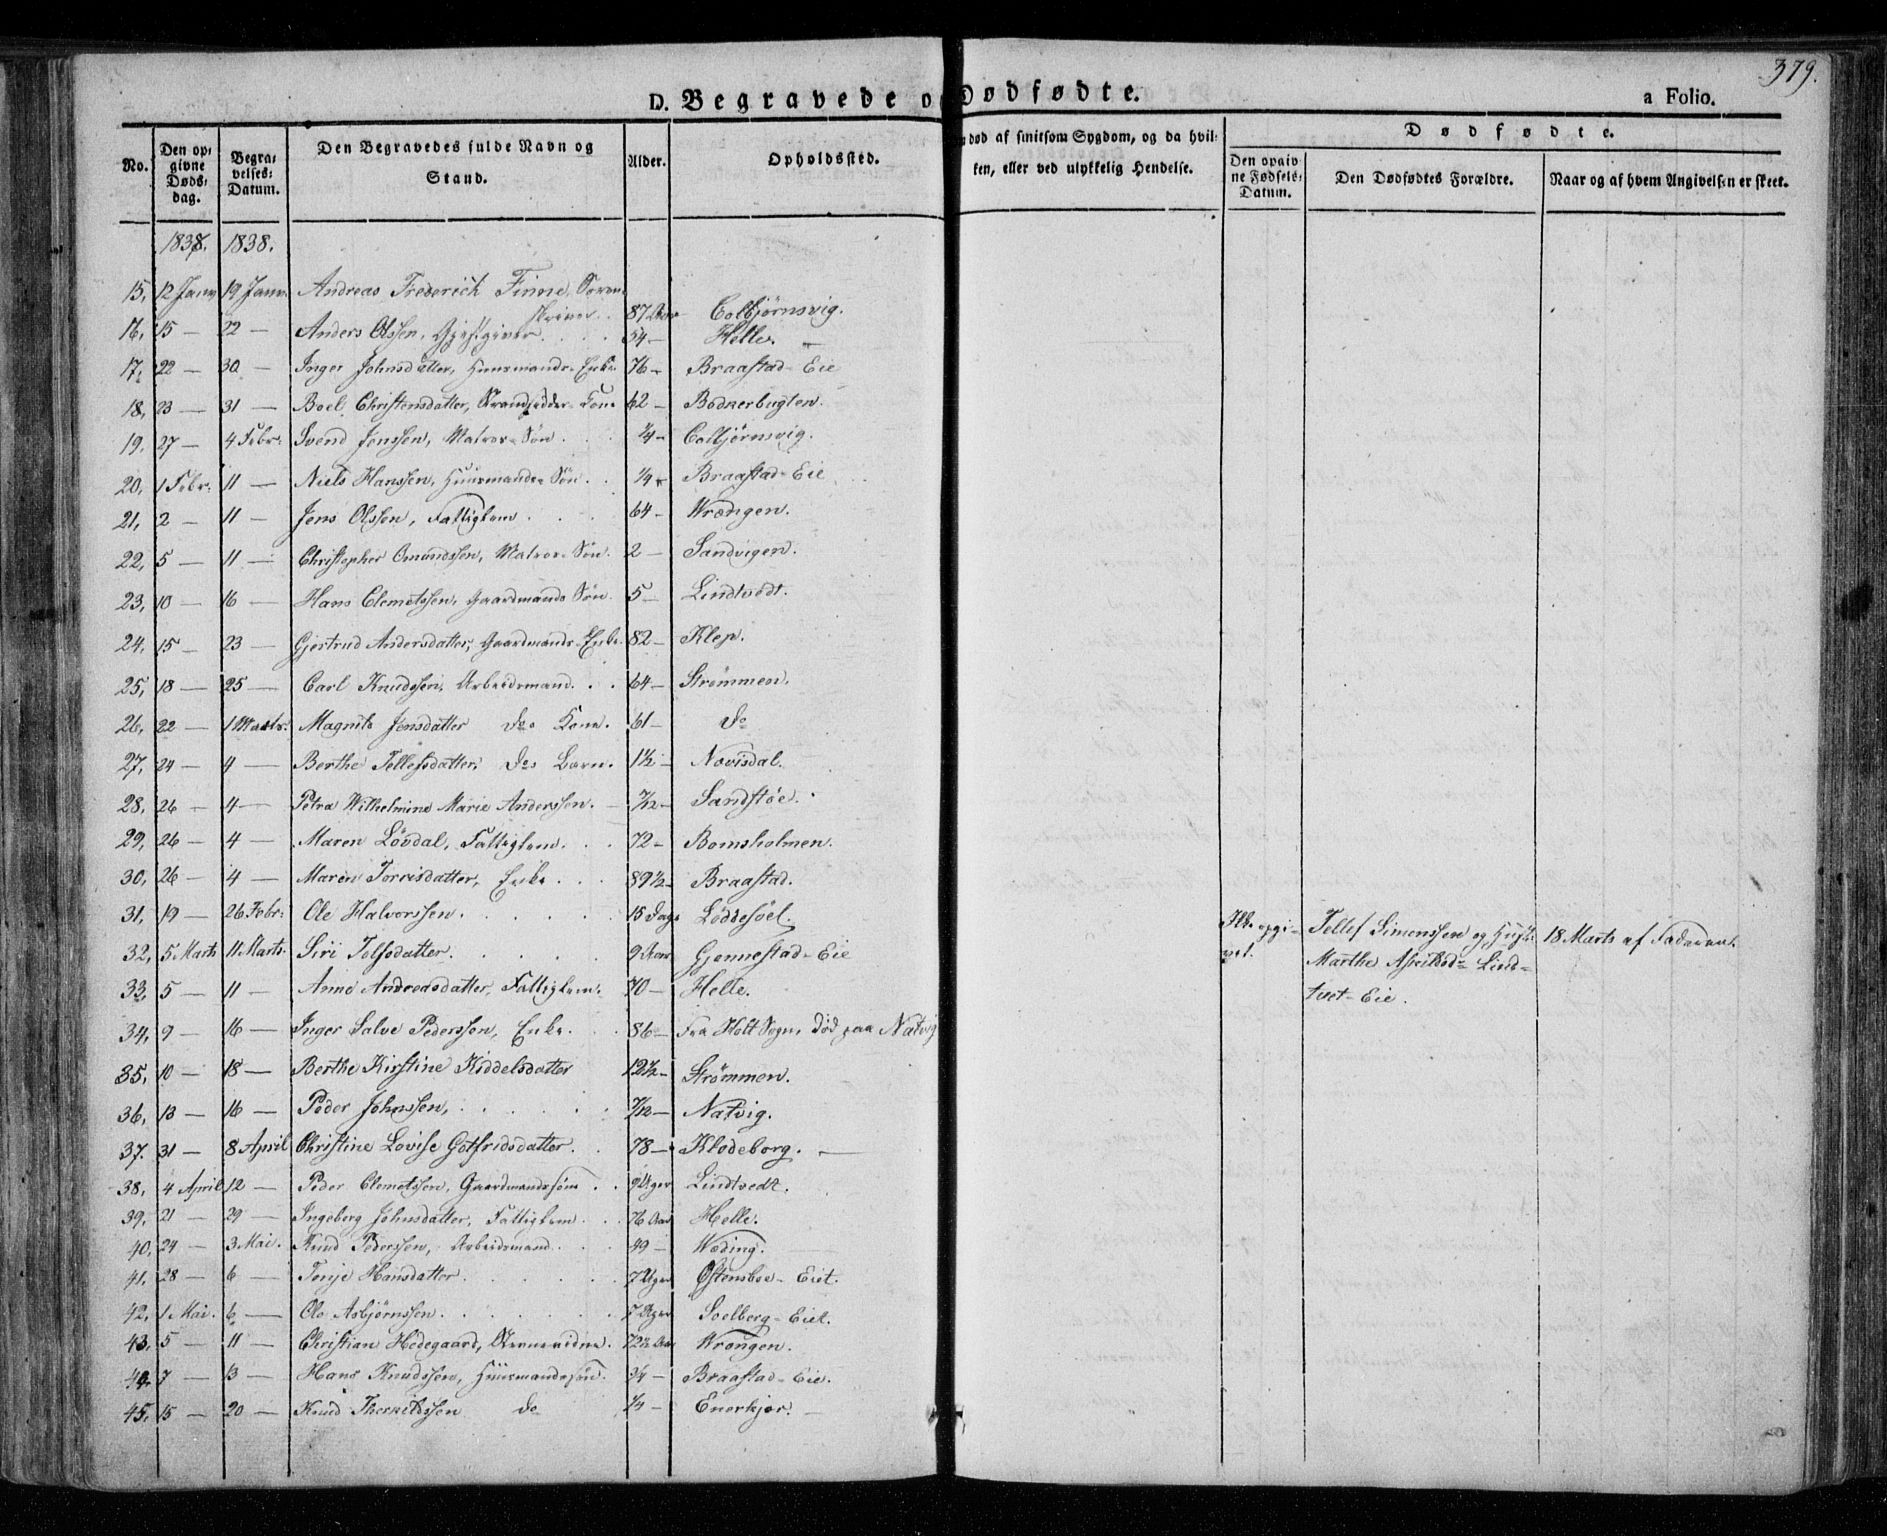 379.
D. Begravede o Dødfødte. a Folio.
No. Den opgivne Dødsdag. Begravelses-Datum. Den Begravedes fulde Navn og Stand. Alder. Opholdssted. død af smitsom Sygdom, og da hvilken, eller ved ulykkelig Hendelse. Dødfødte.
Den opgivne Fødsels-Datum. Den Dødfødtes Forældre. Naar og af hvem Angivelsen er skeet.
1838. 1838.
15, 12 Janv 19 Janv. Andreas Frederich Finne, Soren-
skriver. 87 Aar Colbjørnsvig.
16, 15 — 22 — Anders Olssen, Gjestgiver . . . 54 — Helle. —
17, 22 — 30 — Inger Johnsdatter, Huusmands-Enke 76 — Braastad-Eie
18, 23 — 31 — Boel Christensdatter, Strandsidder-Kone 62 — Bödkerbugten.
19, 27 — 4 Febr: Svend Jenssen, Matros-Søn . . . ¼ — Colbjørnsvig.
20, 1 Febr: 11 — Niels Hanssen, Huusmands-Søn . . ¼ — Braastad-Eie
21, 2 — 11 — Jens Olssen, Fattiglem . . . 64 — Wrængen.
22, 5 — 11 — Christopher Omundssen, Matros-Søn. 2 — Sandvigen.
23, 10 — 16 — Hans Clemetssen, Gaardmands Søn. 5 — Lindtvedt.
24, 15 — 23 — Gjertrud Andersdatter, Gaardmands-Enke 82 — Klep.
25, 18 — 25 — Carl Knudssen, Arbeidsmand . . . 64 — Strømmen.
26, 22 — 1 Marts. Magnild Jensdatter do Kone. 61 — do
27, 24 — 4 — Berthe Tellefsdatter, do Barn. 1½ — Novisdal.
28, 26 — 4 — Petra Wilhelmine Marie Anderssen. — 7/12 — Sandstøe.
29, 26 — 4 — Maren Lövdal, Fattiglem . . . 72 — Bomsholmen.
30, 26 — 4 — Maren Torrisdatter, Enke . . . 89½ — Braastad.
31, 19 — 26 Febr: Ole Halvorssen . . . . . . 15 Dage Löddesöel.
32, 5 Marts 11 Marts. Siri Tolfsdatter . . . . . 9 Aar Gjennestad-Eie
33, 5 — 11 — Anne Andreasdatter, Fattiglem. 70 — Helle.
34, 9 — 16 — Inger Salve Pederssen, Enke . . . 86 — Fra Holt Sogn, død paa Natvig
35, 10 — 18 — Berthe Kirstine Kiddelsdatter 12½ — Strømmen.
36, 13 — 16 — Peder Johnssen, . . . . . 7/12 — Natvig.
37. 31 — 8 April Christine Lovise Gotfridsdatter . . 78 — Klodeborg. —
38, 4 April 12 — Peder Clemetssen, Gaardmandssøn . . 9 Uger Lindtvedt.
39, 21 — 29 — Ingeborg Johnsdatter, Fattiglem . . 76 Aar Helle.
40, 24 — 3 Mai. Knud Pederssen, Arbeidsmand . . . 49 — Wæding.
41, 28 — 6 — Tonje Hansdatter . . . . . . 7 Uger Østensboe-Eiet.
42, 1 Mai. 6 — Ole Asbjørnssen . . . . . . 7 Uger Soelberg-Eiet.
43, 5 — 11 — Christian Hedegaard, 72½ Aar Wrængen.
44, 7 — 13 — Hans Knudssen, Huusmandssøn. ¾ — Braastad-Eie.
45, 15 — 20 — Knud Therkildssen do ¼ — Enerkjær. —
Ikke opgi-
vet.
Tellef Simonssen og Hust:
Marthe Askildsd: Lind-
tvet-Eie.
18 Marts af Faderen.